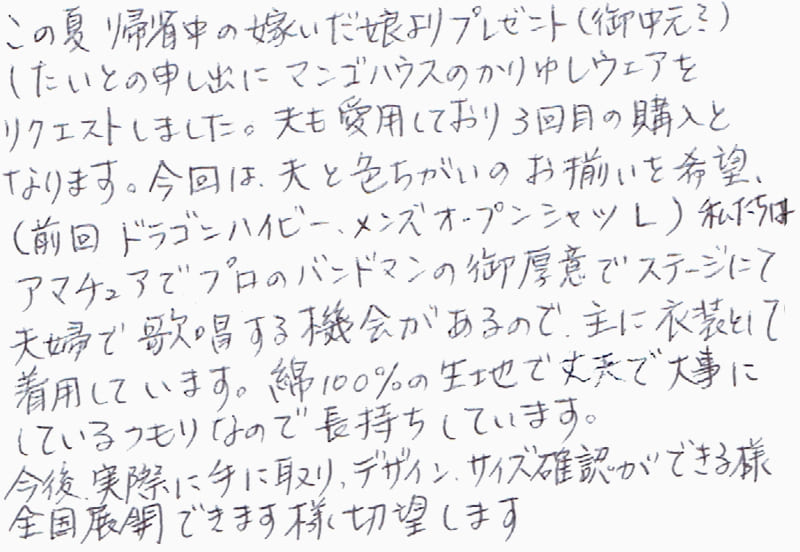 この夏 帰省中の嫁いだ娘よりプレゼント(御中元?)
したいとの申し出に マンゴハウスのかりゆしウェアを
リクエストしました。夫も愛用しており3回目の購入と
なります。今回は、夫と色ちがいのお揃いを希望、
(前回 ドラゴンハイビー、メンズオープンシャツ L) 私たちは
アマチュアでプロのバンドマンの御厚意でステージにて
夫婦で歌唱する機会があるので、主に衣装として
着用しています。綿100%の生地で丈夫で大事に
しているつもりなので長持ちしています。
今後、実際に手に取り、デザイン、サイズ確認ができる様
全国展開できます様切望します